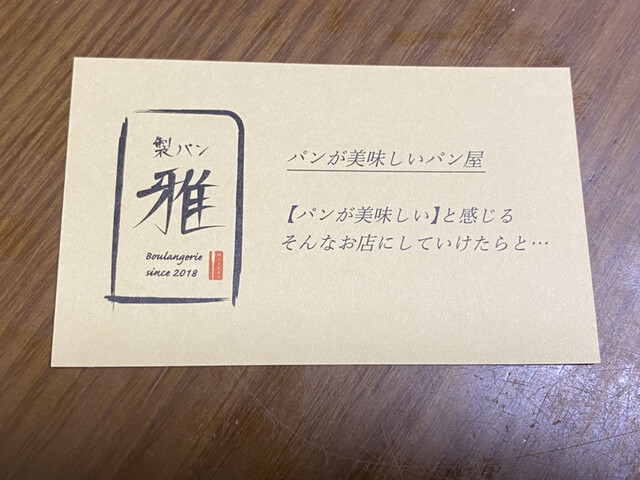 製パン
雅
Boulangerie
since 2018
パンが美味しいパン屋
【パンが美味しい】と感じる
そんなお店にしていけたらと…